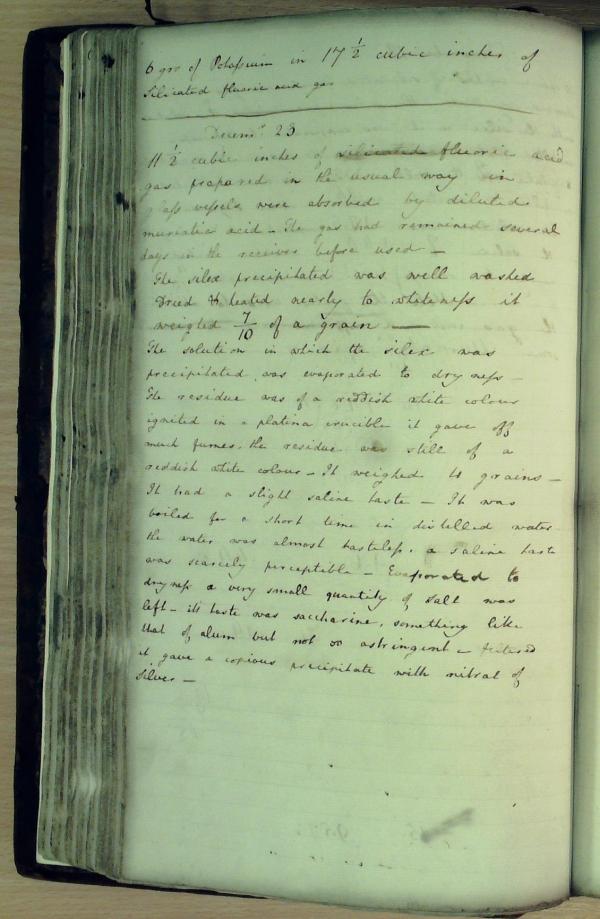 6 grs of Potassium in 17 1/2 cubic inches of
Silicated fluoric acid gas
Decemr 23
11 1/2 cubic inches of silicated fluoric acid
gas prepared in the usual way in
glass vessels were absorbed by diluted
muriatic acid - The gas had remained several
days in the receiver before used -
The silex precipitated was well washed
Dried & heated nearly to whiteness it
weighed 7/10 of a grain -
The solution in which the silex was
precipitated was evaporated to dryness -
The residue was of a reddish white colour
ignited in a platina crucible it gave off
much fumes. the residue was still of a
reddish white colour - It weighed grains -
It had a slight saline taste - It was
boiled for a short time in distilled water
the water was almost tasteless. a saline taste
was scarcely perceptible - Evaporated to
dryness a very small quantity of salt was
left - its taste was saccharine, something like
that of alum but not so astringent -
it gave a copious precipitate with nitrat of
Silver -